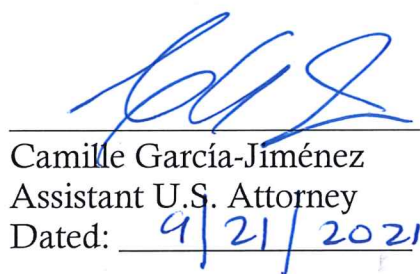 Camille García-Jiménez
Assistant U.S. Attorney
Dated: 9/21/2021